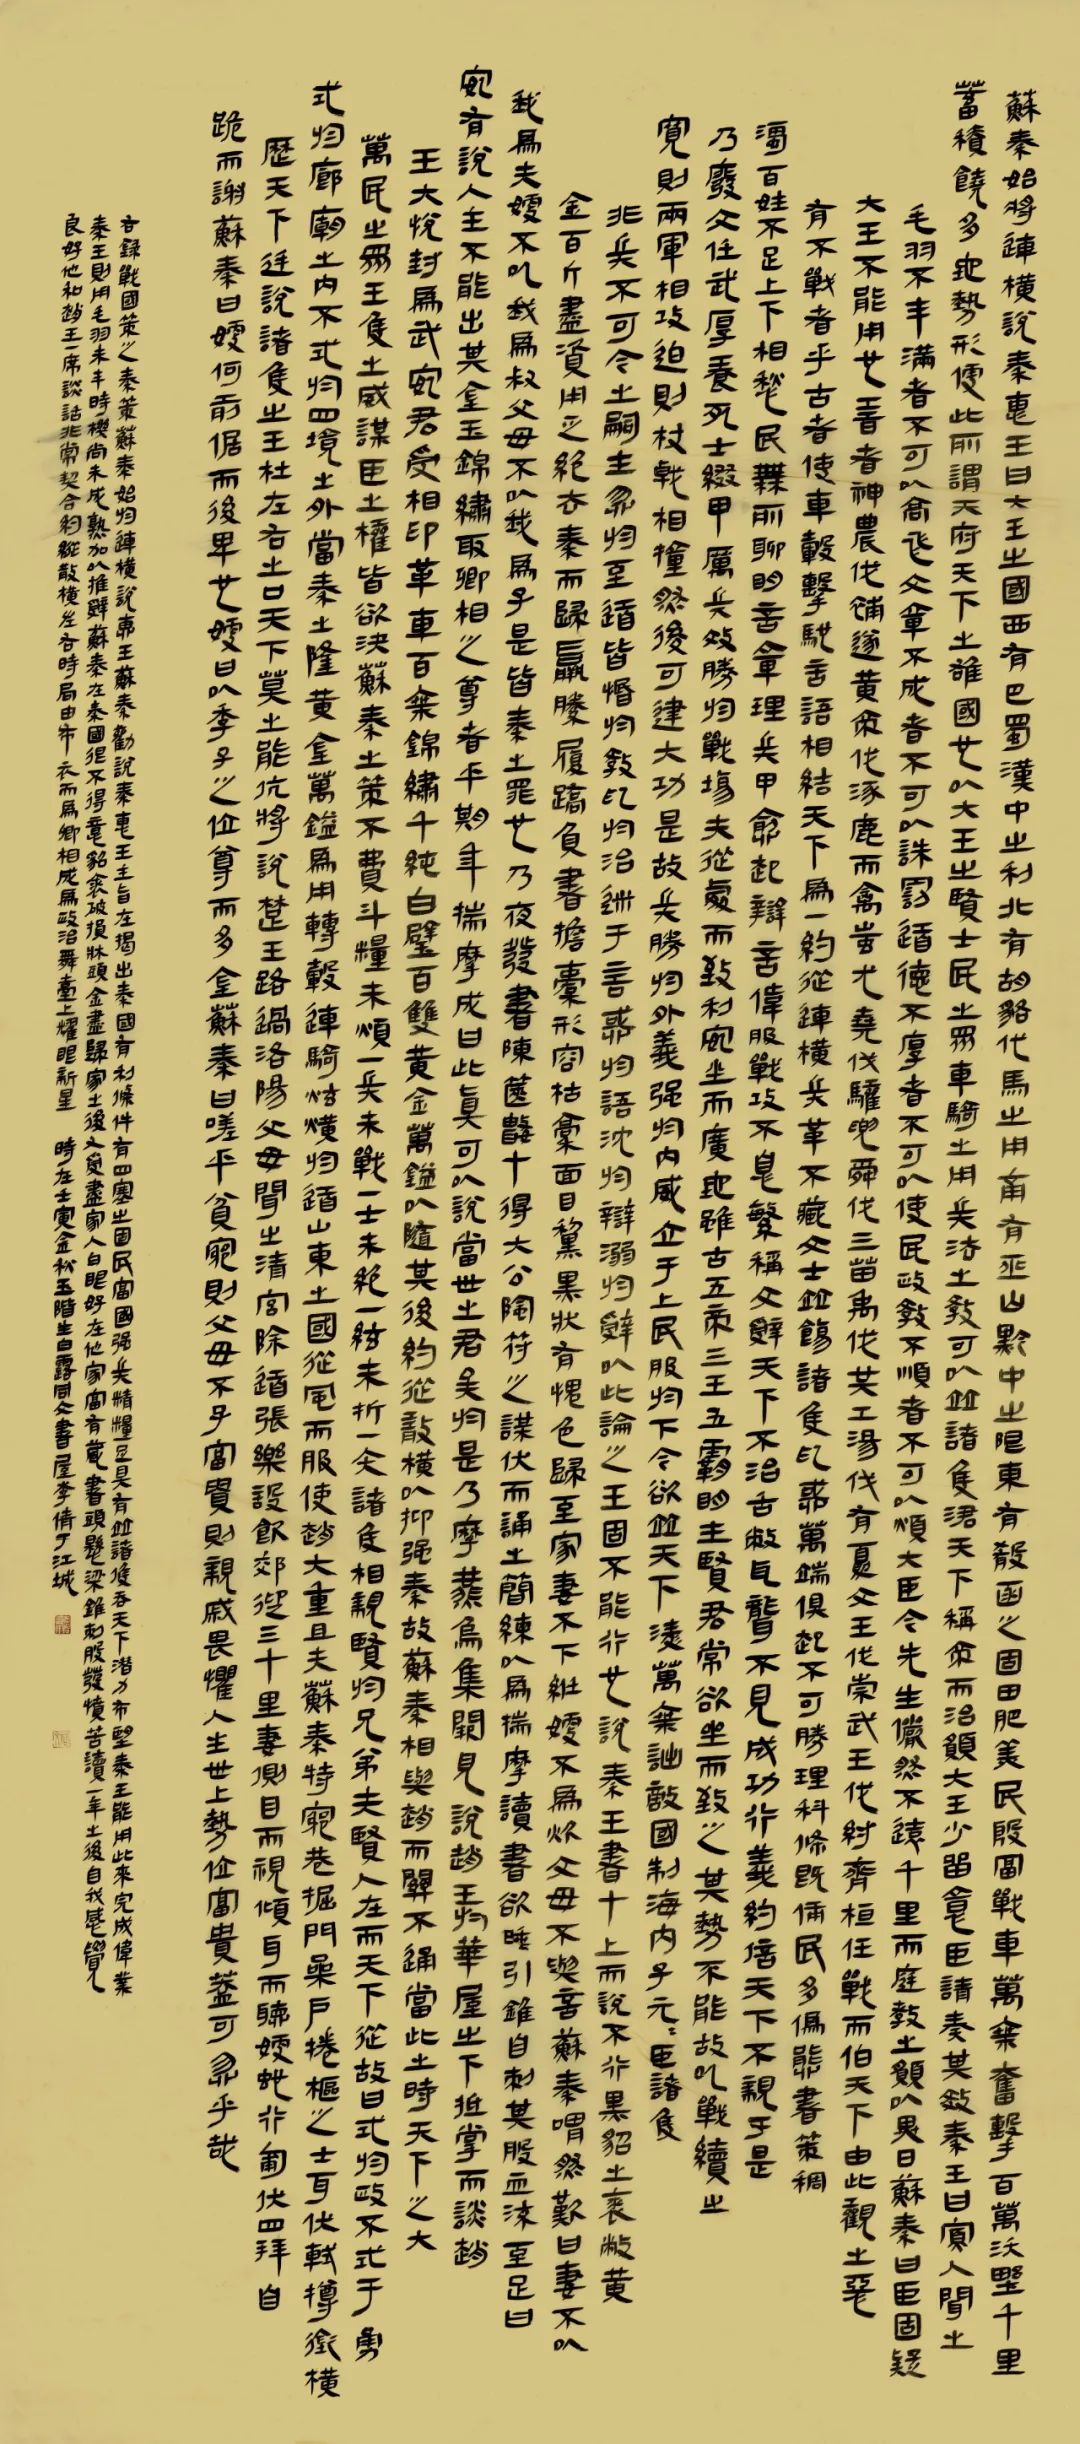 蘇秦始將連橫說秦惠王曰大王之國西有巴蜀漢中之利北有胡貉代馬之用南有巫山黔中之限東有殽函之固田肥美民殷富戰車萬乘奮擊百萬沃野千里
蓄積饒多地勢形便此所謂天府天下之雄國也以大王之賢士民之眾車騎之用兵法之教可以並諸侯吞天下稱帝而治願大王少留意臣請奏其效秦王曰寡人聞之
毛羽不丰滿者不可以高飛文章不成者不可以誅罰道德不厚者不可以使民政教不順者不可以煩大臣今先生儼然不遠千里而庭教之願以異日蘇秦曰臣固疑
大王不能用也昔者神農伐補遂黃帝伐涿鹿而禽蚩尤堯伐驩兜舜伐三苗禹伐共工湯伐有夏文王伐崇武王伐紂齊桓任戰而伯天下由此觀之惡
有不戰者乎古者使車轂擊馳言語相結天下為一約從連橫兵革不藏文士並飭諸侯亂惑萬端俱起不可勝理科條既備民多偽態書策稠
濁百姓不足上下相愁民無所聊明言章理兵甲愈起辯言偉服戰攻不息繁稱文辭天下不治舌敝耳聾不見成功行義約信天下不親于是
乃廢文任武厚養死士綴甲厲兵效勝於戰場夫徒處而致利安坐而廣地雖古五帝三王五霸明主賢君常欲坐而致之其勢不能故以戰續之
寬則兩軍相攻迫則杖戟相撞然後可建大功是故兵勝於外義强於內威立于上民服於下今欲並天下淩萬乘詘敵國制海內子元：臣諸侯
非兵不可今之嗣主忽於至道皆惛於教亂於治迷于言惑於語沈於辯溺於辭以此論之王固不能行也說秦王書十上而說不行黑貂之裘敝黃
金百斤盡資用乏絕去秦而歸羸縢履蹻負書擔橐形容枯槁面目黧黑狀有愧色歸至家妻不下紝嫂不為炊父母不與言蘇秦喟然歎曰妻不以
我為夫嫂不以我為叔父母不以我為子是皆秦之罪也乃夜發書陳篋數十得大公陶符之謀伏而誦之簡練以為揣摩讀書欲睡引錐自刺其股血流至足曰
安有說人主不能出其金玉錦繡取卿相之尊者乎期年揣摩成曰此真可以說當世之君矣於是乃摩燕烏集闕見說趙王於華屋之下抵掌而談趙
王大悅封為武安君受相印革車百乘錦繡千純白璧百雙黃金萬鎰以隨其後約從散橫以抑强秦故蘇秦相與趙而關不通當此之時天下之大
萬民之眾王侯之威謀臣之權皆欲決蘇秦之策不費斗糧未煩一兵未戰一士未絕一絃未折一矢諸侯相親賢於兄弟夫賢人在而天下從故曰式於政不式于勇
式於廊廟之內不式於四境之外當秦之隆黃金萬鎰為用轉轂連騎炫熿於道山東之國從風而服使趙大重且夫蘇秦特窮巷掘門桑戶捲樞之士耳伏軾撙銜橫
歷天下廷說諸侯之王杜左右之口天下莫之能伉將說楚王路過洛陽父母聞之清宮除道張樂設飲郊迎三十里妻側目而視傾耳而聽嫂蛇行匍伏四拜自
跪而謝蘇秦曰嫂何前倨而後卑也嫂曰以季子之位尊而多金蘇秦曰嗟乎貧窮則父母不子富貴則親戚畏懼人生世上勢位富貴蓋可忽乎哉
右錄戰國策之秦策蘇秦始將連橫說惠王蘇秦勸說秦惠王主旨在揭出秦國有利條件有四塞之固民富國强兵精糧足具有並諸侯吞天下潛力希望秦王能用此來完成偉業
秦王則用毛羽未丰時機尚未成熟加以推辭蘇秦在秦國很不得意貂裘破損牀頭金盡歸家之後又受盡家人白眼好在他家富有藏書頭懸梁錐刺股發憤苦讀一年之後自我感覺
良好他和趙王一席談話非常契合約縱散橫左右時局由布衣而為卿相成為政治舞臺上耀眼新星 時在壬寅金秋玉階生白露同文書屋李倩于江城